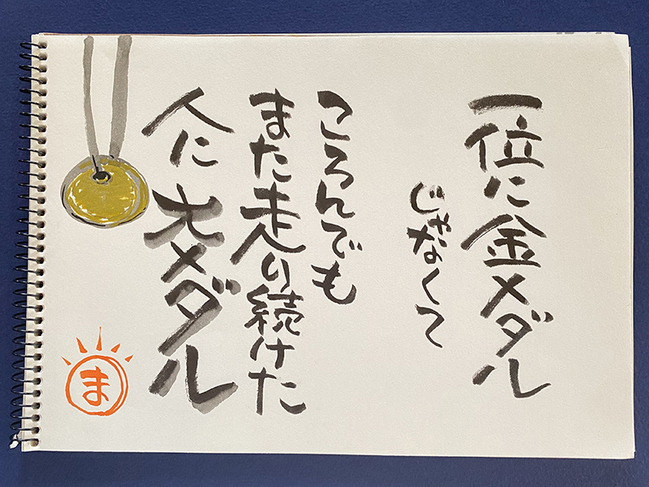 一位に金メダル
じゃなくて
ころんでも
また走り続けた
人に大メダル
ま